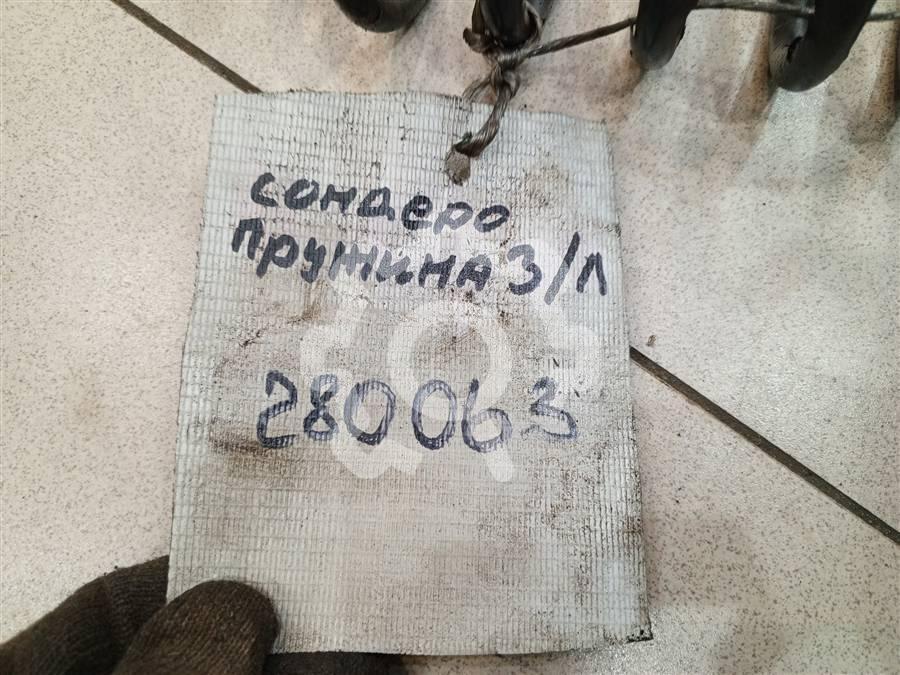 сондеро
пружина З/Л
280063